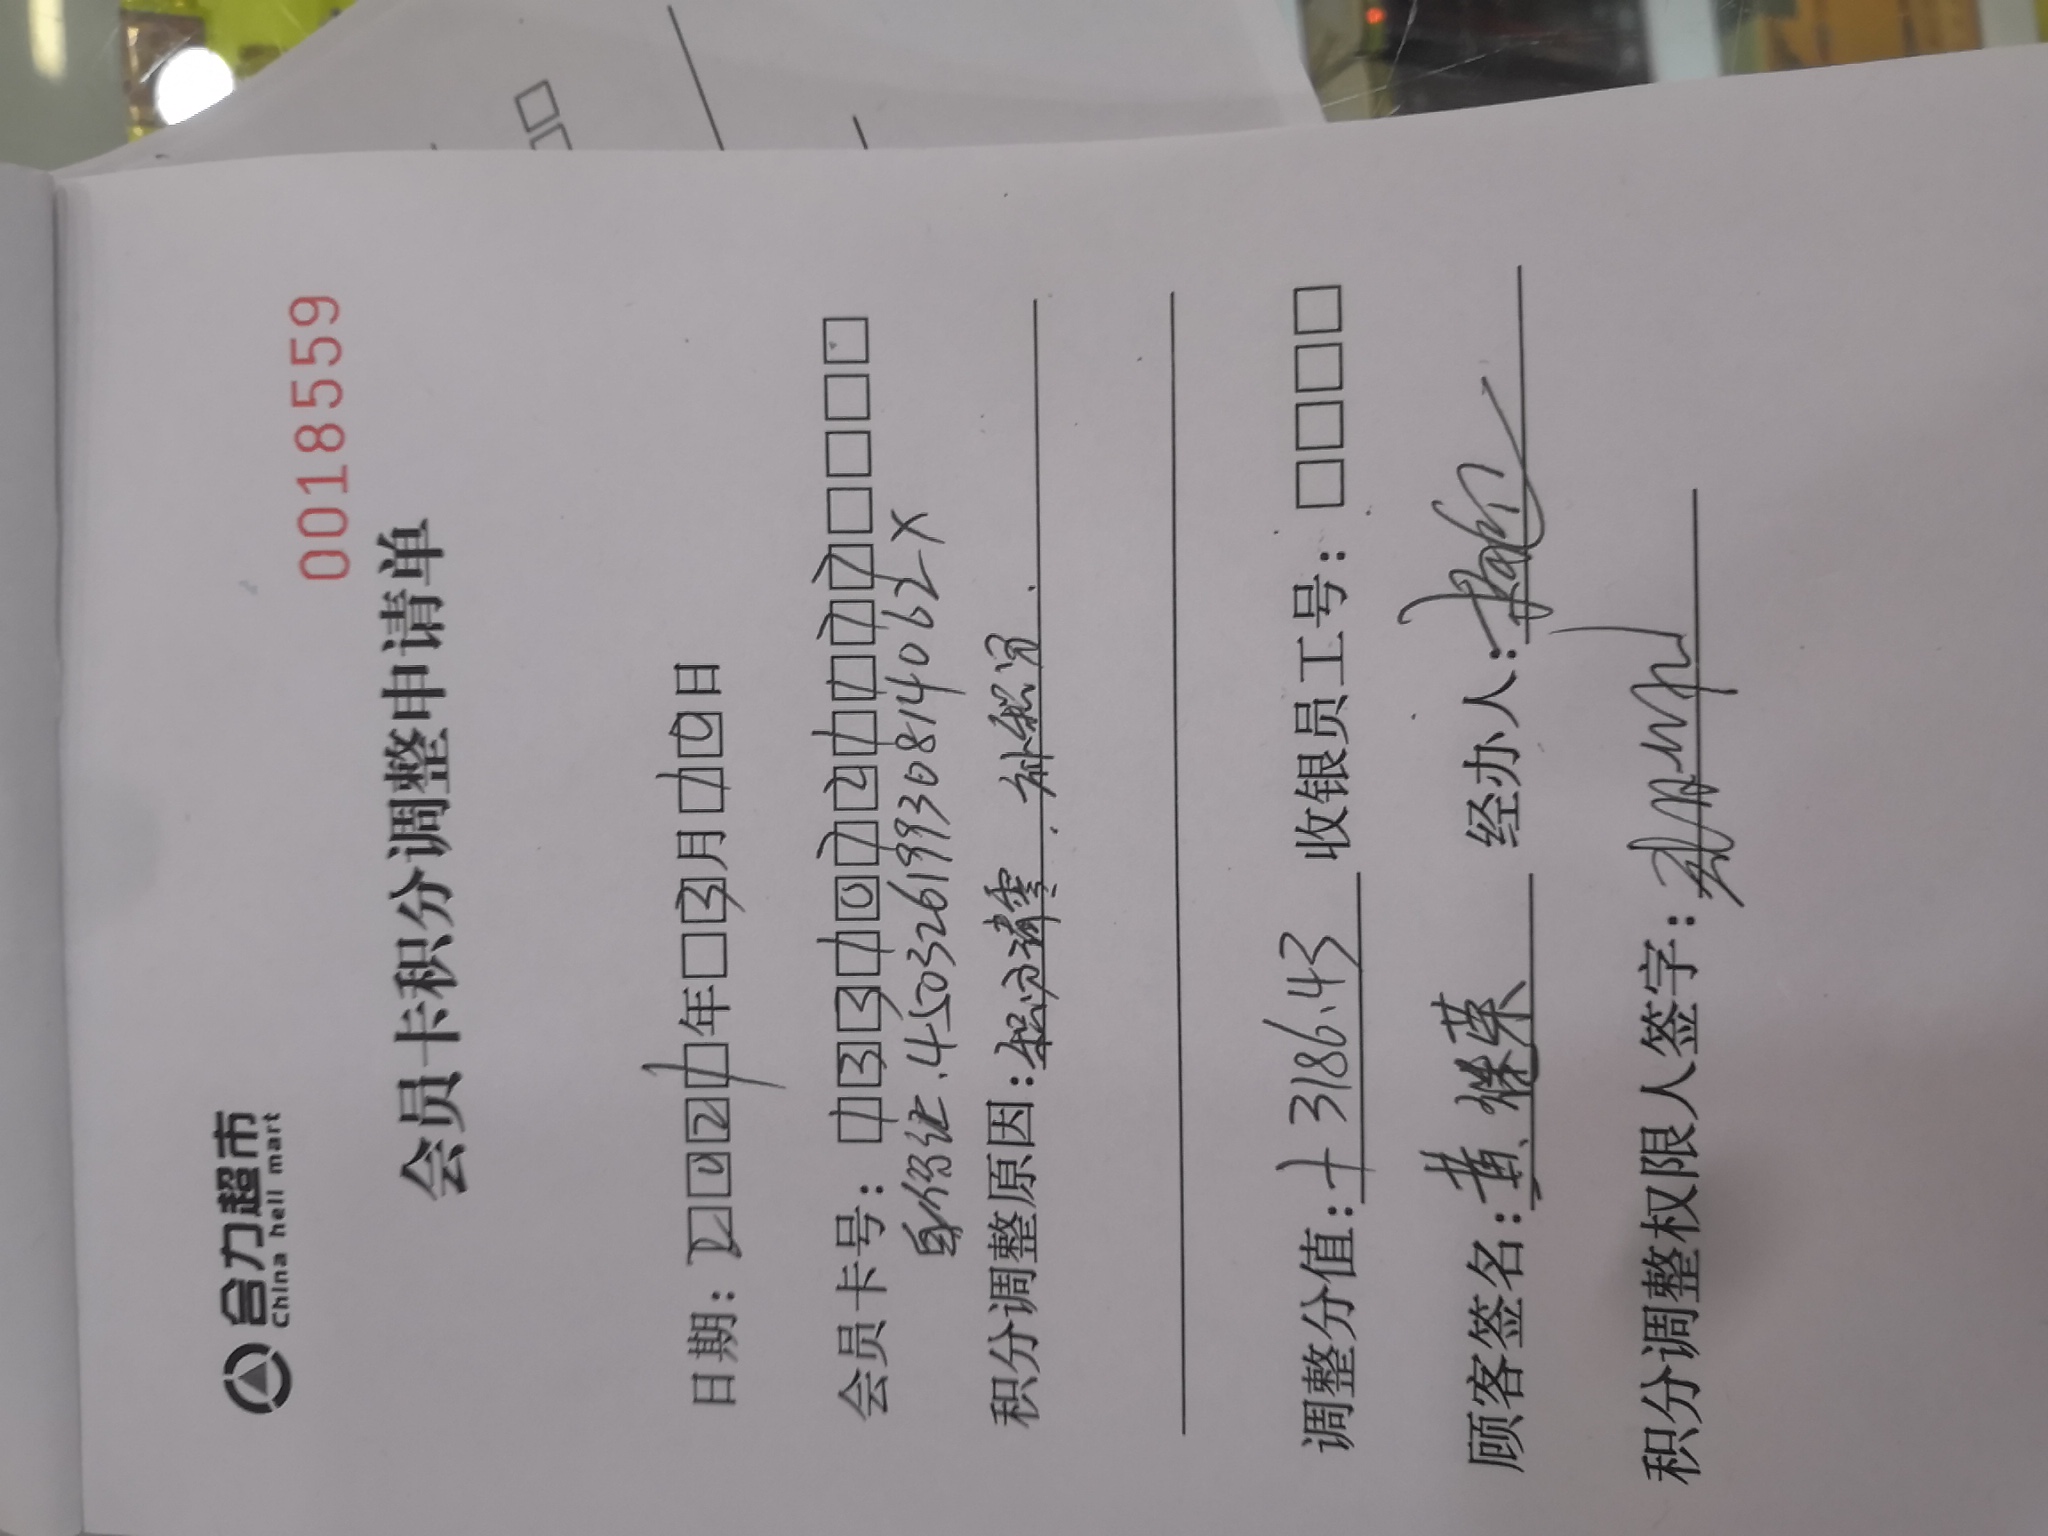 合力超市
China hell mart
0018559
会员卡积分调整申请单
日期：2021年3月19日
会员卡号：13310721777
身份证.45032619930814062X
积分调整原因：积分清零.补积分.
调整分值：+3186.43 收银员工号：□□□□
顾客签名：黄继英 经办人：
积分调整权限人签字：